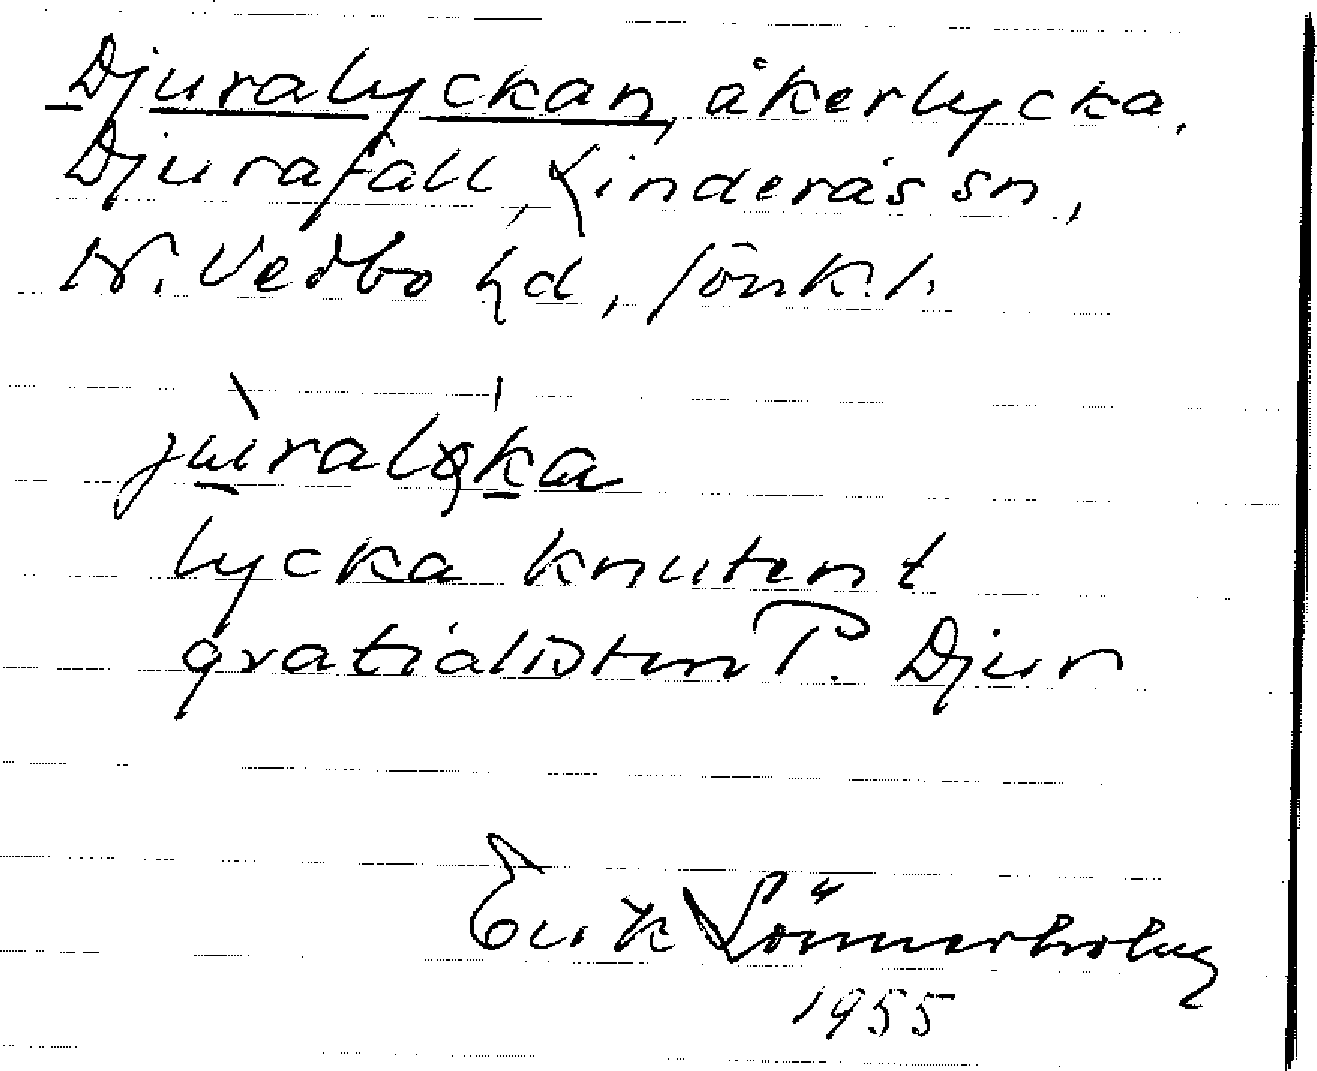 Djuralyckan, åkerlycka,
Djurafall, Linderås sn,
N. Vedbo hd, Jönk. l.
lycka knuten t
gratialisten P. Djur
Erik Lönnerholm
1955